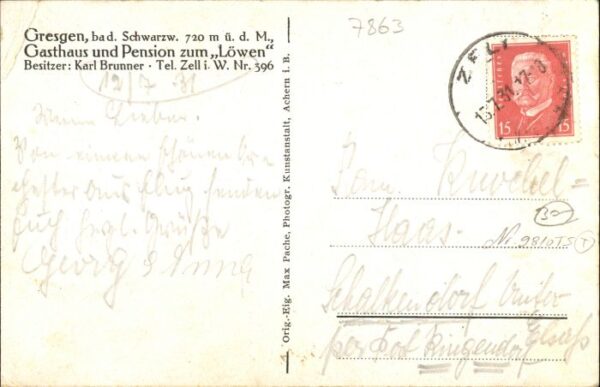 Gresgen, bad. Schwarzw. 720 m ü. d. M.,
Gasthaus und Pension zum „Löwen“
Besitzer: Karl Brunner · Tel. Zell i. W. Nr. 396
12/7 31
Meine Lieben.
Von einem schönen
aus flug senden
euch herzl. Grüße
Georg & Anna
Orig.-Eig. Max Pache, Photogr. Kunstanstalt, Achern i. B.
7863
ZELL
13.7.31.17-18
15 15
Fam. Knochel =
Haas
30
Schalkendorf Unter
per Post Ringendorf Elsass